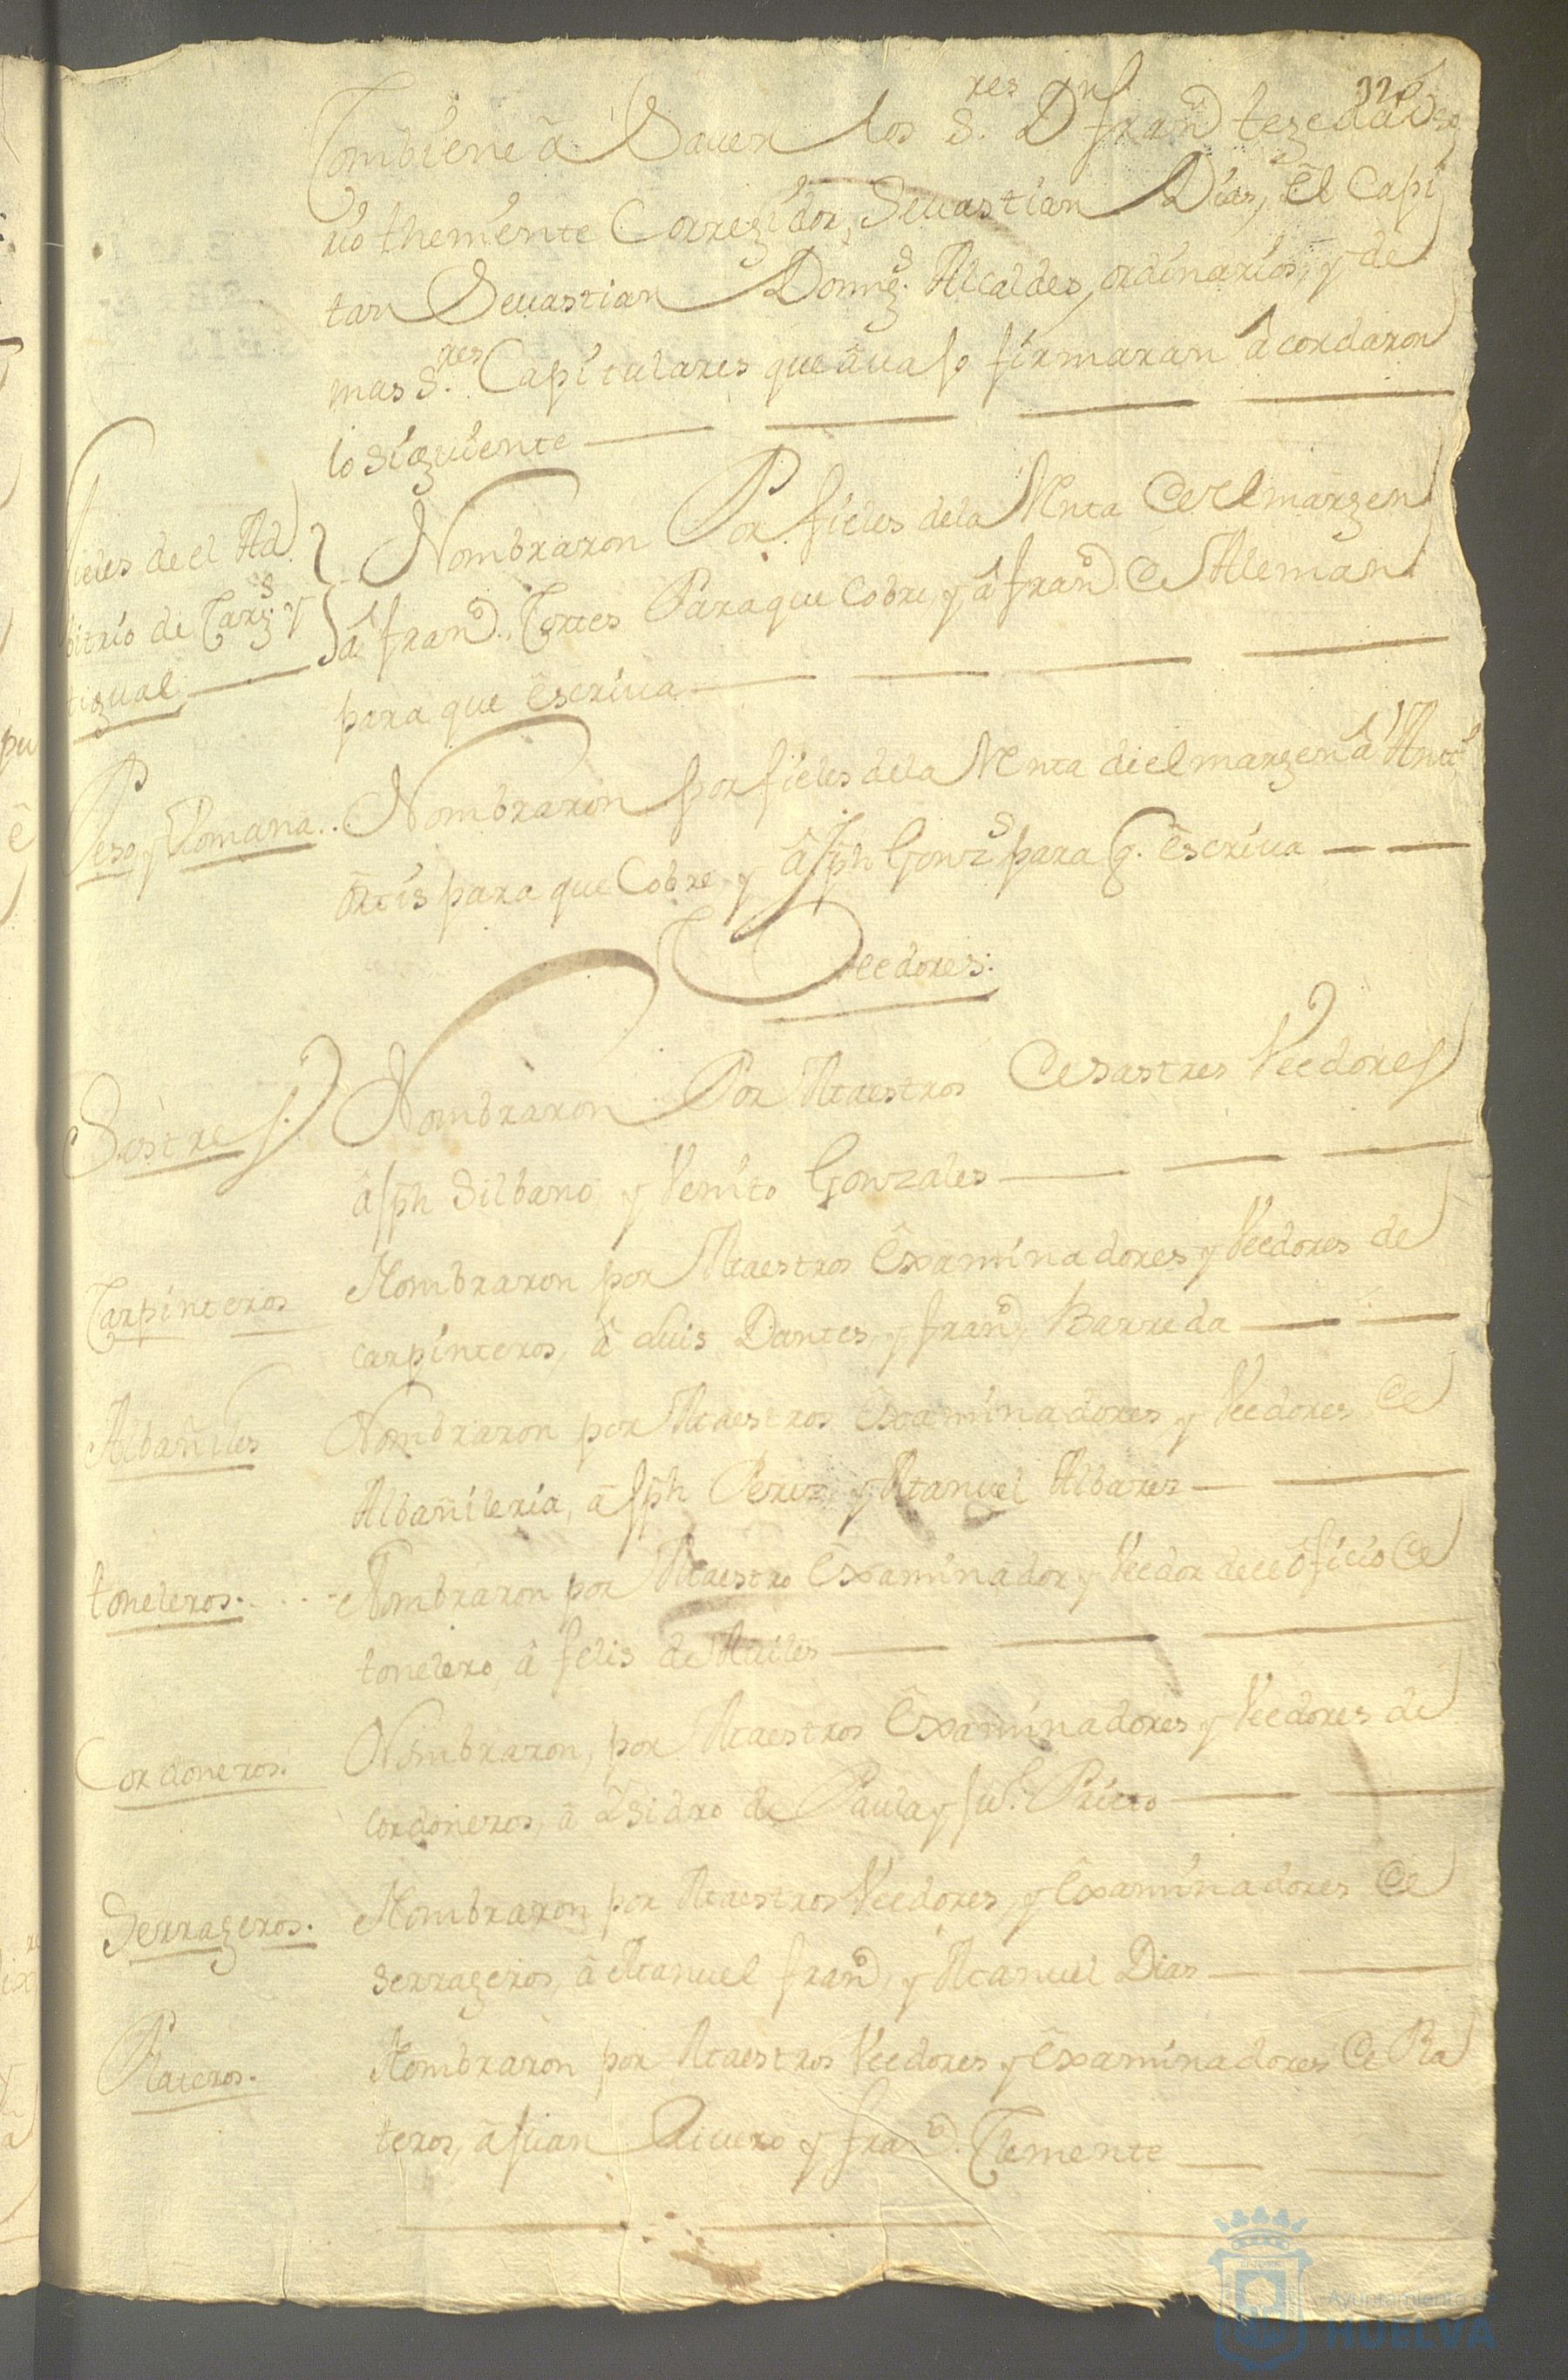 326
Combiene â Sauer los S.res Dn fran.co tezeda Oso
rio themiente Correxidor, Seuastian Dias, êl Capi
tan Seuastian Domg.s Alcaldes, ordinarios, y de
mas S.res Capitulares que âuaſo firmaran âcordaron
lo siguiente
fieles de el Ad
bitrio de Carg.s y
tigual
Nombraron Por fieles de la Renta de el margen
â fran.co Torres Para que Cobre, y â fran.co de Aleman
para que êscriua
Peso, y Romana
Nombraron por fieles de la Renta de el margen â Antt.o
ôrtis para que Cobre y â Jph Gonz.s para q. êscriua
Veedores.
Sastres.
Nombraron Por Maestros de sastres Veedores
â Jph Silbano y Venito Gonzales
Carpinteros
Nombraron por Maestros êxaminadores y Veedores de
carpinteros, â Luis Dantes, y fran.co Barreda
Albañiles
Nombraron por Maestros êxaminadores y Veedores de
Albañileria, â Jph Perez y Manuel Albarez
toneleros.
Nombraron por Maestro êxaminador y Veedor de el ôficio de
tonelero, â felis de Auiles
Cordoneros.
Nombraron, por Maestros êxaminadores y Veedores de
cordoneros, â Ysidro de Paula y Ju.o Prieto
Serrageros.
Nombraron por Maestros Veedores, y êxaminadores de
serrageros, â Manuel fran.co, y Manuel Dias
Plateros.
Nombraron por Maestros Veedores y êxaminadores de Pla
teros, â Juan Riuero y fran.co Clemente
Ayuntamiento de
HUELVA